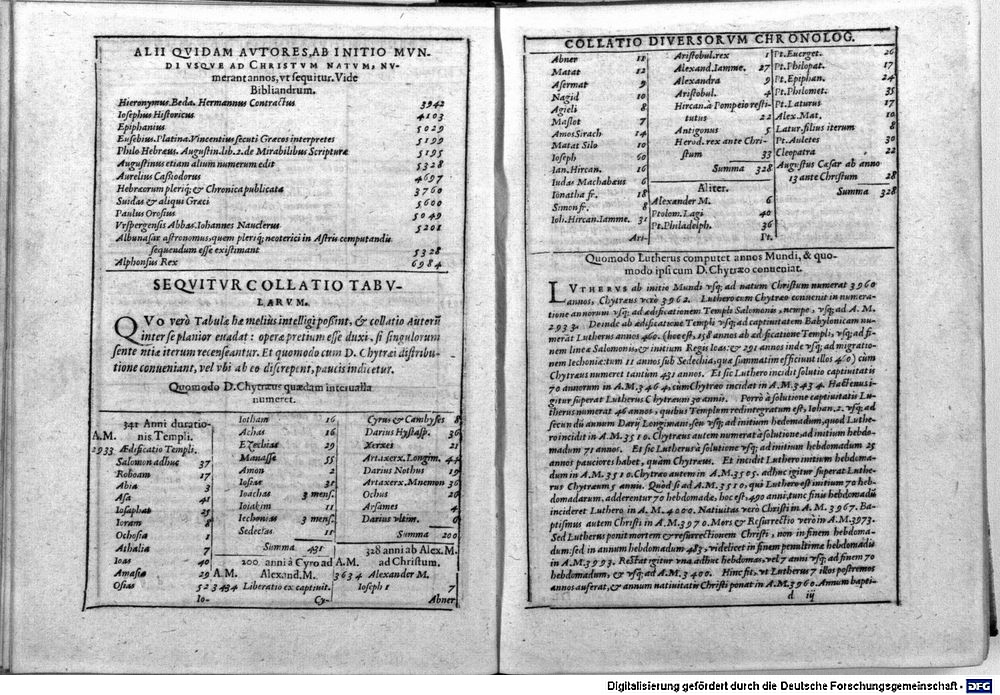 ALII QVIDAM AVTORES, AB INITIO MVN-
DI VSQVE AD CHRISTVM NATVM, NV-
merant annos, vt sequitur. Vide
Bibliandrum.
Hieronymus. Beda. Hermannus Contractus 3942
Iosephus Historicus 4103
Epiphanius 5029
Eusebius. Platina. Vincentius secuti Græcos interpretes 5199
Philo Hebræus. Augustin. lib. 2. de Mirabilibus Scripturæ 5195
Augustinus etiam alium numerum edit 5328
Aurelius Cassiodorus 4697
Hebræorum pleriq; & Chronica publicata 3760
Suidas & aliqui Græci 5600
Paulus Orosius 5049
Vrspergensis Abbas. Iohannes Nauclerus 5201
Albunasar astronomus, quem pleriq; neoterici in Astris computandis
sequendum esse existimant 5328
Alphonsus Rex 6984
SEQVITVR COLLATIO TABV-
LARVM.
QVo verò Tabulæ hæ melius intelligi possint, & collatio Autorũ
inter se planior euadat: operæpretium esse duxi, si singulorum
sententiæ iterum recenseantur. Et quomodo cum D. Chytræi distribu-
tione conueniant, vel vbi ab eo discrepent, paucis indicetur.
Quomodo D. Chytræus quædam interualla
numeret.
341 Anni duratio-
A.M. nis Templi.
2933 Ædificatio Templi.
Salomon adhuc 37
Roboam 17
Abia 3
Asa 41
Iosaphat 25
Ioram 8
Ochosia 1
Athalia 7
Ioas 40
Amasia 29
Osias 52
Io-
Iotham 16
Achas 16
Ezechias 29
Manasse 55
Amon 2
Iosias 31
Ioachas 3 mens.
Ioiakim 11
Iechonias 3 mens.
Sedecias 11
Summa 431
200 anni à Cyro ad
A.M. Alexand. M.
3434 Liberatio ex captiuit.
Cy-
Cyrus & Cambyses 8
Darius Hystasp. 36
Xerxes 21
Artaxerx. Longim. 44
Darius Nothus 19
Artaxerx. Mnemon 36
Ochus 26
Arsames 4
Darius vltim. 6
Summa 200
328 anni ab Alex. M.
A.M. ad Christum.
3634 Alexander M.
Ioseph 1 7
Abner
COLLATIO DIVERSORVM CHRONOLOG.
Abner 11
Matat 12
Asermat 9
Nagid 10
Agieli 8
Maslot 7
Amos Sirach 14
Matat Silo 10
Ioseph 60
Ian. Hircan. 16
Iudas Machabæus 6
Ionatha fr. 18
Simon fr. 8
Ioh. Hircan. Iamme. 31
Ari-
Aristobul. rex 1
Alexand. Iamme. 27
Alexandra 9
Aristobul. 4
Hircan. à Pompeio resti-
tutus 22
Antigonus 5
Herod. rex ante Chri-
stum 33
Summa 328
Aliter.
Alexander M. 6
Ptolom. Lagi 40
Pt. Philadelph. 36
Pt.
Pt. Euerget. 26
Pt. Philopat. 17
Pt. Epiphan. 24
Pt. Philomet. 35
Pt. Laturus 17
Alex. Mat. 10
Latur. filius iterum 8
Pt. Auletes 30
Cleopatra 22
Augustus Cæsar ab anno
13 ante Christum 28
Summa 328
Quomodo Lutherus computet annos Mundi, & quo-
modo ipsi cum D. Chytræo conueniat.
LVTHERVS ab initio Mundi vsq; ad natum Christum numerat 3960
annos, Chytræus verò 3962. Luthero cum Chytræo conuenit in nume-
ratione annorum vsq; ad ædificationem Templi Salomonis, nempe, vsq; ad A.M.
2933. Deinde ab ædificatione Templi vsq; ad captiuitatem Babylonicam nu-
merat Lutherus annos 460. (hoc est, 158 annos ab ædificatione Templi, vsq; ad fi-
nem lineæ Salomonis, & initium Regis Ioas: & 291 annos inde vsq; ad migratio-
nem Iechoniæ: tum 11 annos sub Sedechia, quæ summatim efficiunt illos 460) cùm
Chytræus numeret tantùm 431 annos. Et sic Luthero incidit solutio captiuitatis
70 annorum in A.M. 3464, cùm Chytræo incidat in A.M. 3434. Hactenus i-
gitur superat Lutherus Chytræum 30 annis. Porrò à solutione captiuitatis Lu-
therus numerat 46 annos, quibus Templum redintegratum est, Iohan. 2. vsq; ad
secundũ annum Darij Longimani, seu vsq; ad initium hebdomadum, quod Luthe-
ro incidit in A.M. 3510. Chytræus autem numerat à solutione, ad initium hebdo-
madum 71 annos. Et sic Lutherus à solutione vsq; ad initium hebdomadum 25
annos pauciores habet, quàm Chytræus. Et incidit Luthero initium hebdoma-
dum in A.M. 3510. Chytræo autem in A.M. 3505. adhuc igitur superat Luthe-
rus Chytræum 5 annis. Quòd si ad A.M. 3510, qui Luthero est initium 70 heb-
domadarum, adderentur 70 hebdomadæ, hoc est, 490 anni, tunc finis hebdomadũ
incideret Luthero in A.M. 4000. Natiuitas verò Christi in A.M. 3967. Ba-
ptismus autem Christi in A.M. 3970. Mors & Resurrectio verò in A.M. 3973.
Sed Lutherus ponit mortem & resurrectionem Christi, non in finem hebdoma-
dum: sed in annum hebdomadum 483, videlicet in finem penultimæ hebdomadis
in A.M. 3993. Restat igitur vna adhuc hebdomas, vel 7 anni vsq; ad finem 70
hebdomadum, & vsq; ad A.M. 3400. Hinc fit, vt Lutherus 7 illos postremos
annos auferat, & annum natiuitatis Christi ponat in A.M. 3960. Annum bapti-
d iij
Digitalisierung gefördert durch die Deutsche Forschungsgemeinschaft - DFG